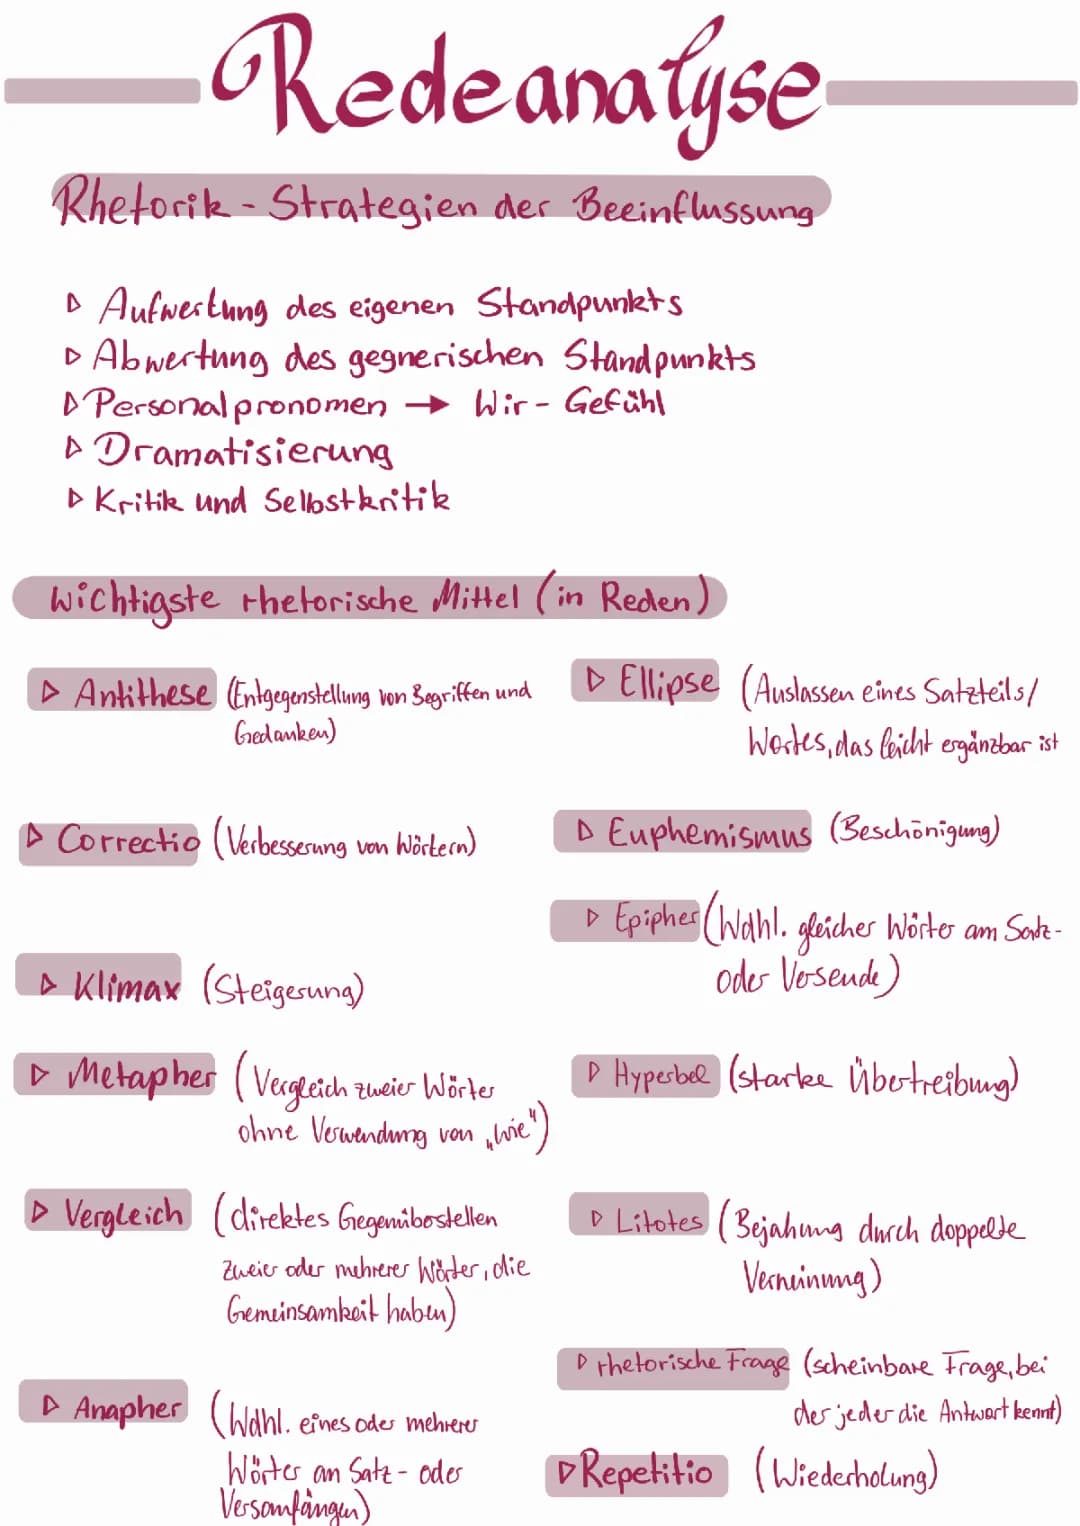 Redeanalyse
Rhetorik - Strategien der Beeinflussung
▷ Aufwertung des eigenen Standpunkts
▷ Abwertung des gegnerischen Standpunkts
▷ Personalpronomen → Wir - Gefühl
▷ Dramatisierung
▷ Kritik und Selbstkritik
Wichtigste rhetorische Mittel (in Reden)
▷ Antithese (Entgegenstellung von Begriffen und
Gedanken)
▷ Correctio (Verbesserung von Wörtern)
▷ Klimax (Steigerung)
▷ Metapher (Vergleich zweier Wörter
ohne Verwendung von „wie")
▷ Vergleich (direktes Gegenüberstellen
zweier oder mehrerer Wörter, die
Gemeinsamkeit haben)
▷ Anapher (Wdhl. eines oder mehrerer
Wörter an Satz- oder
Versanfängen)
▷ Ellipse (Auslassen eines Satzteils/
Wortes, das leicht ergänzbar ist
▷ Euphemismus (Beschönigung)
▷ Epipher (Wdhl. gleicher Wörter am Satz-
oder Versende)
▷ Hyperbel (starke Übertreibung)
▷ Litotes (Bejahung durch doppelte
Verneinung)
▷ rhetorische Frage (scheinbare Frage, bei
der jeder die Antwort kennt)
▷ Repetitio (Wiederholung)